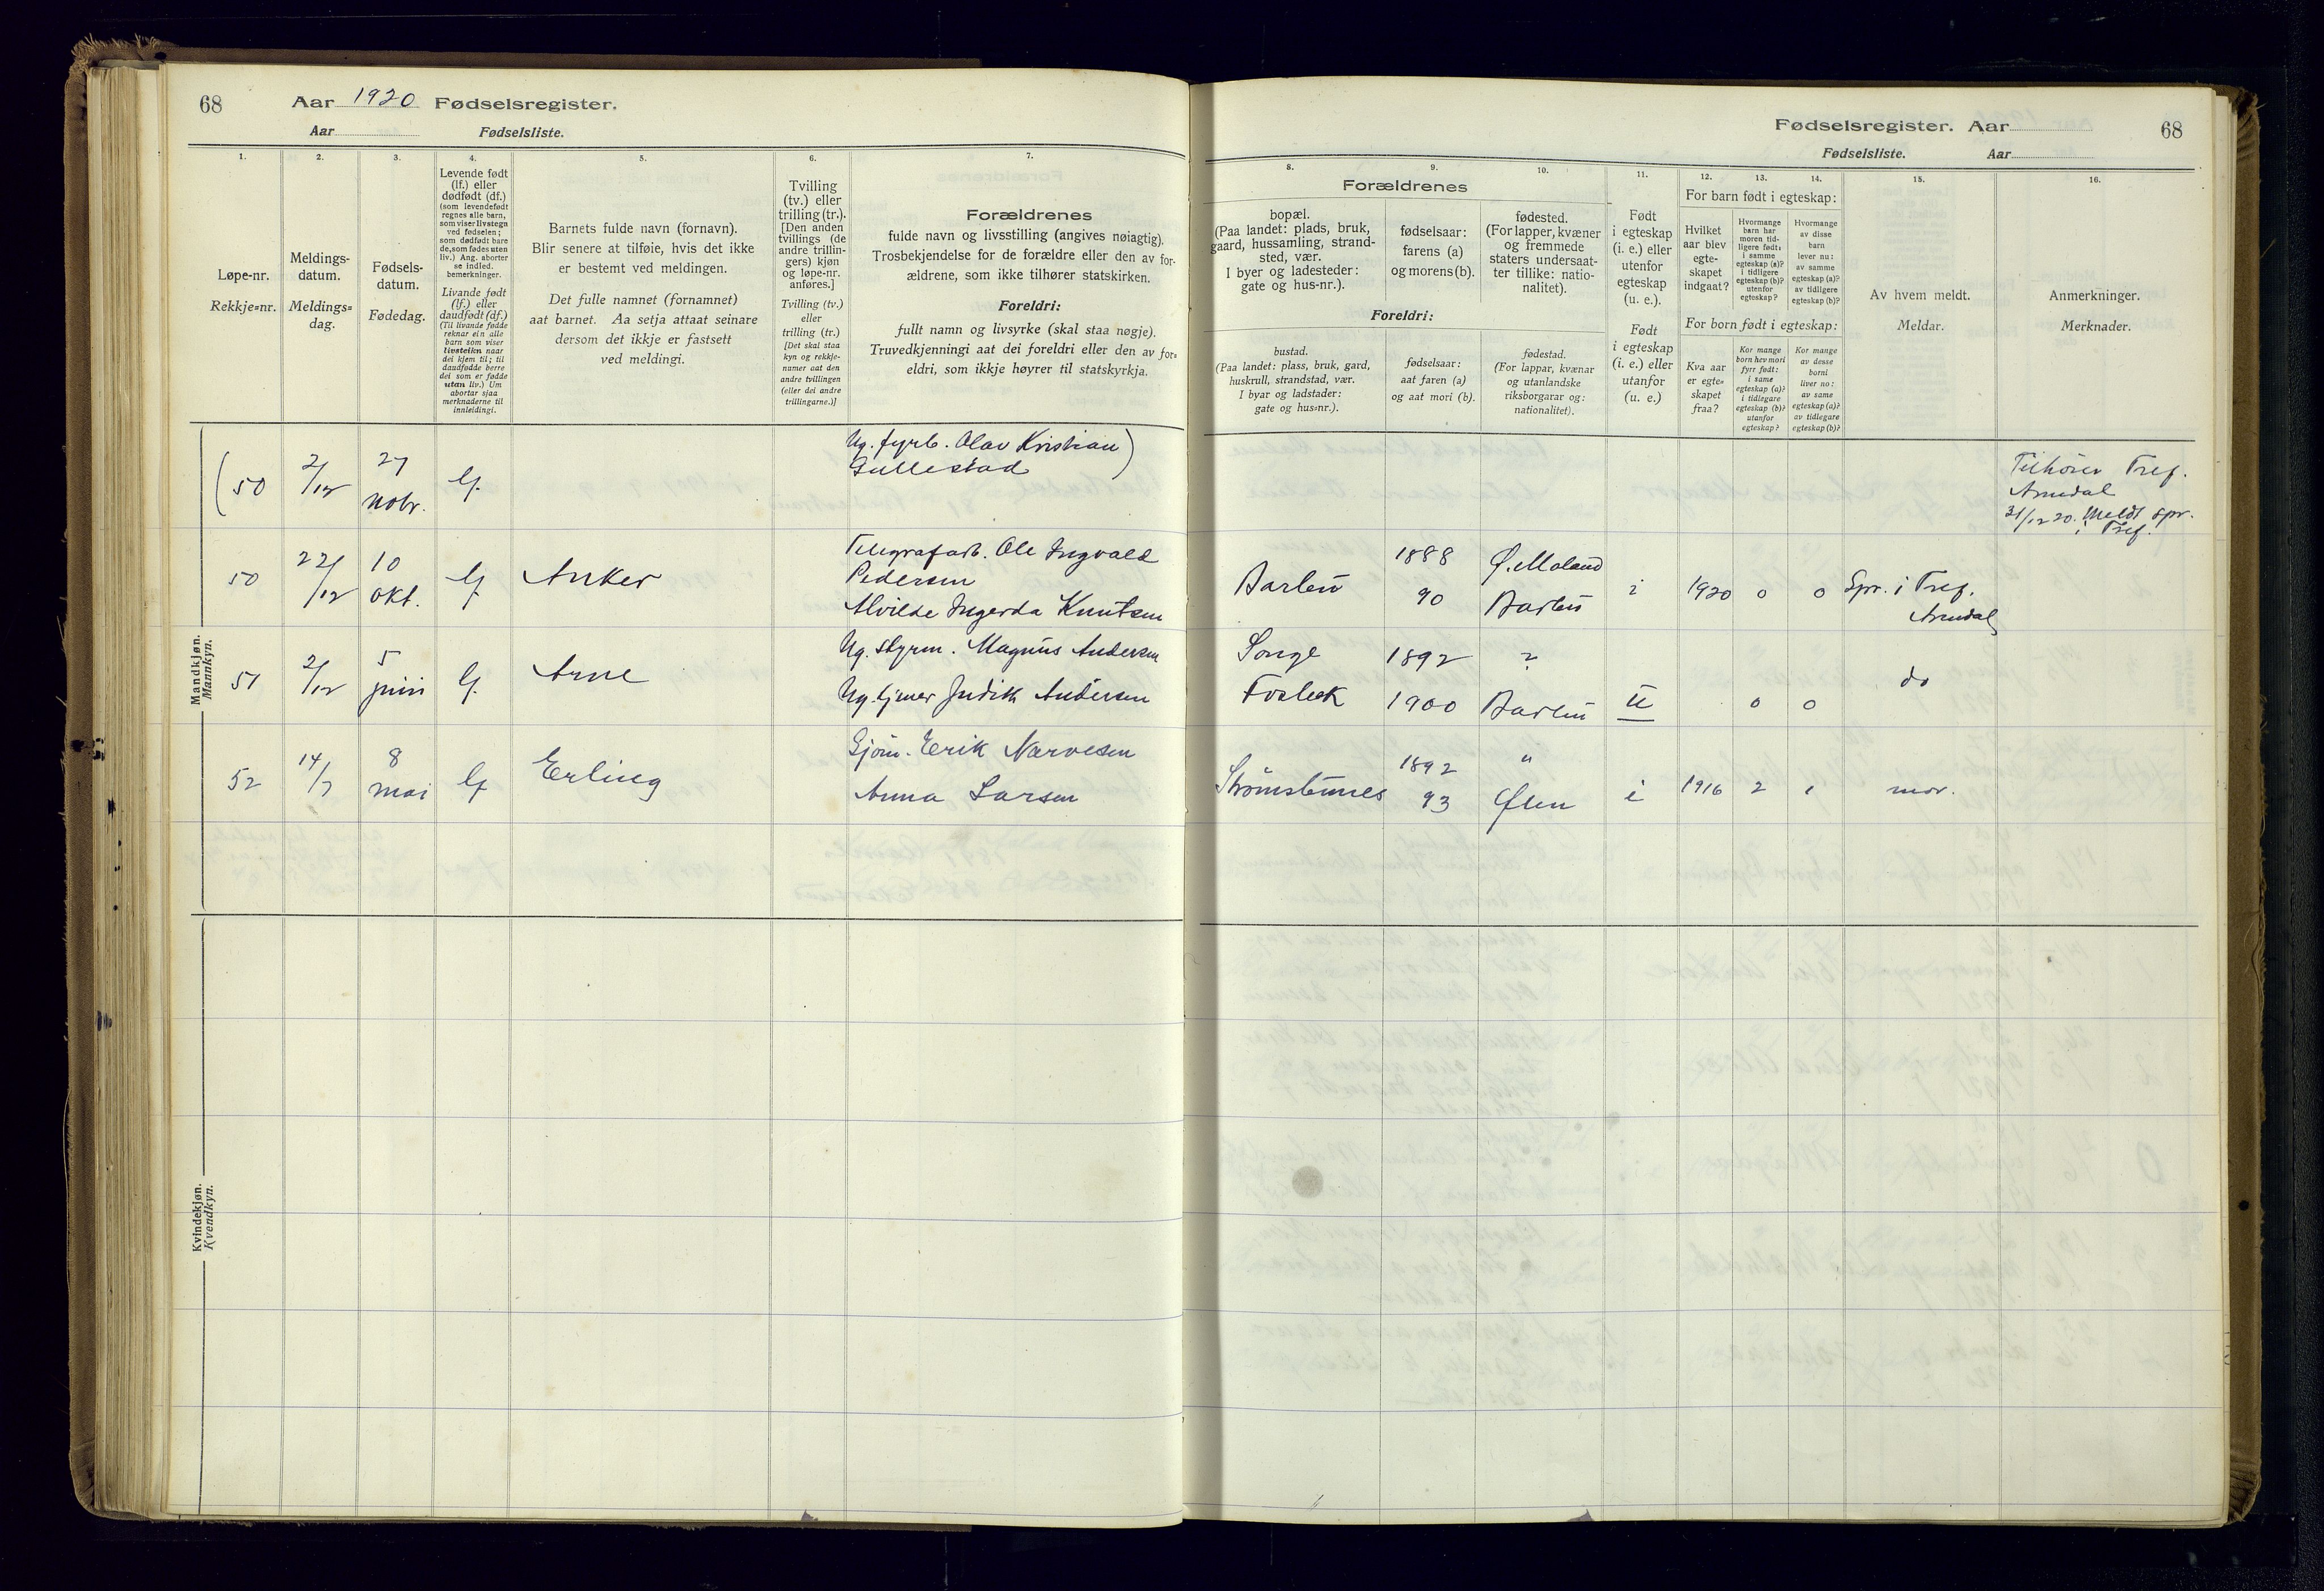 68
Aar 1920 Fødselsregister.
Aar Fødselsliste.
1.
2.
3.
4.
5.
6.
7.
Løpe-nr.
Rekkje=nr.
Meldings-
datum.
Meldings=
dag.
Fødsels-
datum.
Fødedag.
Levende født
(lf.) eller
dødfødt (df.)
(som levendefødt
regnes alle barn,
som viser livstegn
ved fødselen;
som dødfødt bare
de, som fødes uten
liv.) Ang. aborter
se indled.
bemerkninger.
Livande født
(lf.) eller
daudfødt (df.)
(Til livande fødde
reknar ein alle
barn som viser
livsteikn naar
dei kjem til; til
daudfødde berre
dei som er fødde
utan liv.) Um
abortar sjaa
merknaderne til
innleidingi.
Barnets fulde navn (fornavn).
Blir senere at tilføie, hvis det ikke
er bestemt ved meldingen.
Det fulle namnet (fornamnet)
aat barnet. Aa setja attaat seinare
dersom det ikkje er fastsett
ved meldingi.
Tvilling
(tv.) eller
trilling (tr.).
[Den anden
tvillings (de
andre trillin-
gers) kjøn
og løpe-nr.
anføres.]
Tvilling (tv.)
eller
trilling (tr.)
[Det skal staa
kyn og rekkje-
numer aat den
andre tvillingen
(eller dei andre
trillingarne.)]
Forældrenes
fulde navn og livsstilling (angives nøiagtig).
Trosbekjendelse for de forældre eller den av for-
ældrene, som ikke tilhører statskirken.
Foreldri:
fullt namn og livsyrke (skal staa nøgje).
Truvedkjenningi aat dei foreldri eller den av for=
eldri, som ikkje høyrer til statskyrkja.
Mandkjøn.
Mannkyn.
(50 2/12 27 nobr. lf. Ug. fyrb. Olav Kristian)
Gullestad
50 22/12 10 okt. lf Anker Telegrafarb. Ole Ingvald
Pedersen
Alvilde Ingerda Knutsen
51 2/12 5 juni lf. Arne Ug. styrm. Magnus Andersen
Ug. tjener Judith Andersen
52 14/7 8 mai lf Erling Sjøm. Erik Narvesen
Anna Larsen
Kvindekjøn.
Kvendkyn.
Fødselsregister. Aar 68
Fødselsliste. Aar
8.
9.
10.
11.
12.
13.
14.
15.
16.
Forældrenes
bopæl.
(Paa landet: plads, bruk,
gaard, hussamling, strand-
sted, vær.
I byer og ladesteder:
gate og hus-nr.).
fødselsaar:
farens (a)
og morens (b).
fødested.
(For lapper, kvæner
og fremmede
staters undersaat-
ter tillike: natio-
nalitet).
Foreldri:
bustad.
(Paa landet: plass, bruk, gard,
huskrull, strandstad, vær.
I byar og ladstader:
gate og hus=nr.).
fødselsaar:
aat faren (a)
og aat mori (b).
fødestad.
(For lappar, kvænar
og utanlandske
riksborgarar og:
nationalitet).
Født
i egteskap
(i. e.) eller
utenfor
egteskap
(u. e.).
Født
i egteskap
(i. e.) eller
utanfor
(u. e.)
For barn født i egteskap:
Hvilket
aar blev
egte-
skapet
indgaat?
Hvormange
barn har
moren tid-
ligere født:
i samme
egteskap (a)?
i tidligere
egteskap (b)?
utenfor
egteskap?
Hvormange
av disse
barn
lever nu:
av samme
egteskap (a)?
av tidligere
egteskap (b)?
For born født i egteskap:
Kva aar
er egte=
skapet
fraa?
Kor mange
born hev mori
fyrr født:
i same
egteskap (a)?
i tidlegare
egteskap (b)?
utanfor
egteskap?
Kor mange
av desse
borni
liver no:
av same
egteskap (a)?
av tidlegare
egteskap (b)?
Av hvem meldt.
Meldar.
Anmerkninger.
Merknader.
Tilhører Tref.
Arendal
31/12 20. Meldt spr.
i Tref.
1888 Ø. Moland
Barbu 90 Barbu i 1920 0 0 Spr. i Tref.
Arendal
Songe 1892 ?
Fosbæk 1900 Barbu u 0 0 do
1892 "
Strømsbunes 93 Øien i 1916 2 1 mor.